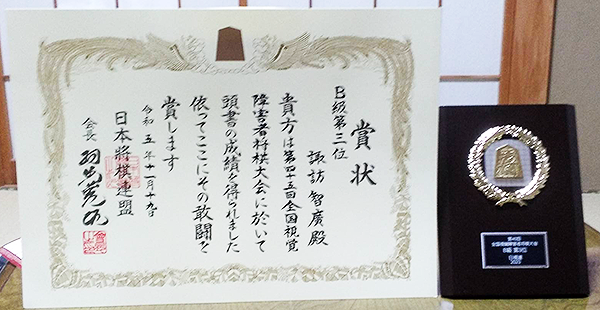 賞状
B級第三位
諏訪智廣殿
貴方は第四十五回全国視覚
障害者将棋大会に於いて
頭書の成績を得られました
依ってここにその敢闘を
賞します
令和五年十一月十九日
日本将棋連盟
会長 羽生善治
第45回
全国視覚障害者将棋大会
B級 第3位
日視連
2023